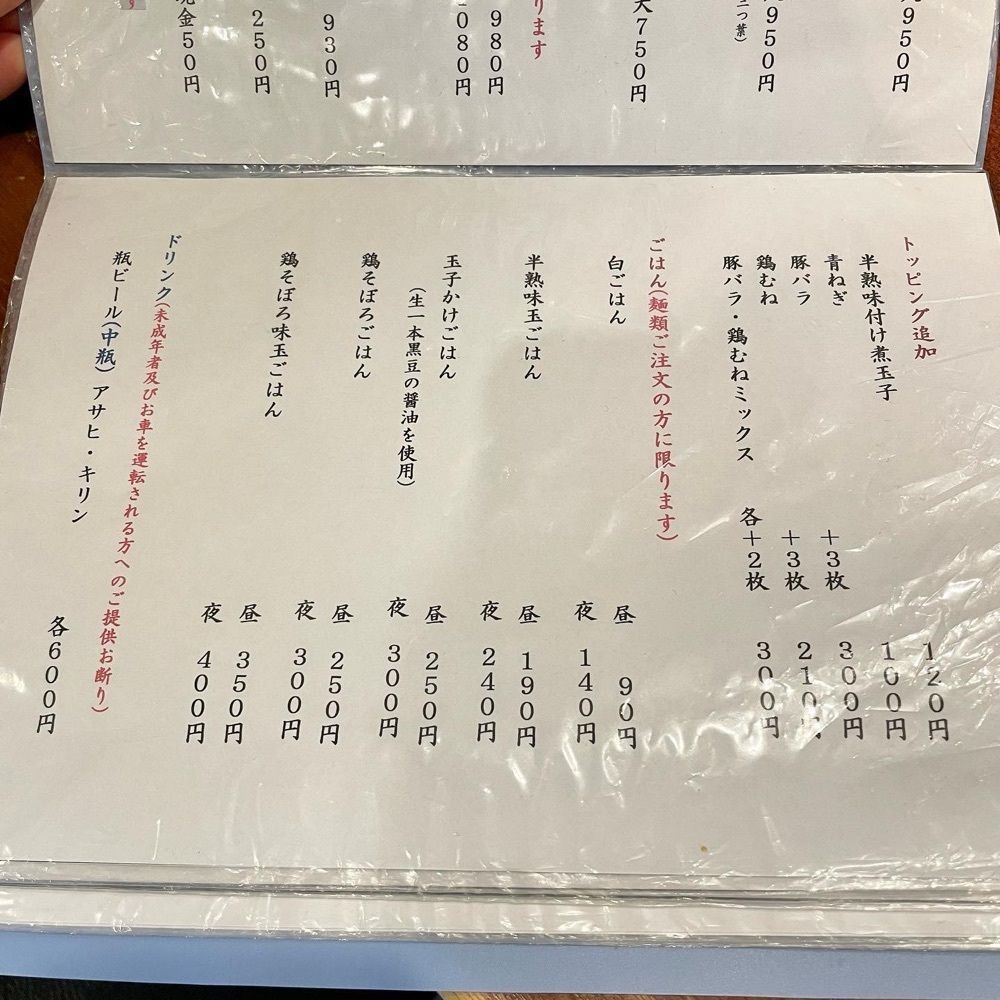 950円
950円
三つ葉)
大750円
ります
980円
080円
930円
250円
金50円
す
トッピング追加
半熟味付け煮玉子 120円
青ねぎ 100円
豚バラ +3枚 300円
鶏むね +3枚 210円
豚バラ・鶏むねミックス 各+2枚 300円
ごはん(麺類ご注文の方に限ります)
白ごはん 昼 90円
夜 140円
半熟味玉ごはん 昼 190円
夜 240円
玉子かけごはん 昼 250円
(生一本黒豆の醤油を使用) 夜 300円
鶏そぼろごはん 昼 250円
夜 300円
鶏そぼろ味玉ごはん 昼 350円
夜 400円
ドリンク(未成年者及びお車を運転される方へのご提供お断り)
瓶ビール(中瓶) アサヒ・キリン 各600円